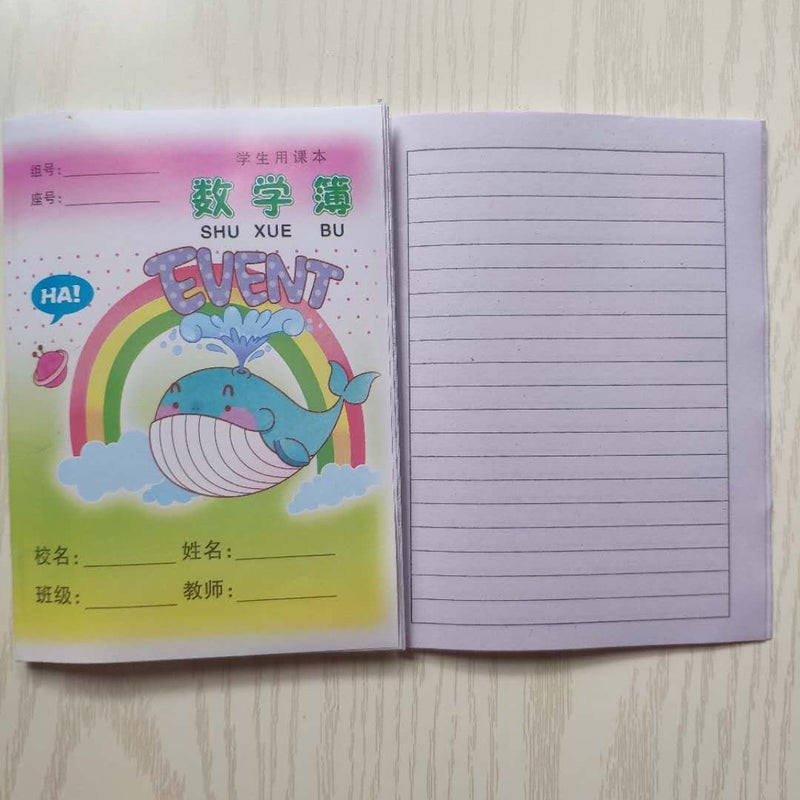 学生用课本
组号:
座号:
数学簿
SHU XUE BU
EVENT
HA!
校名: 姓名:
班级: 教师: